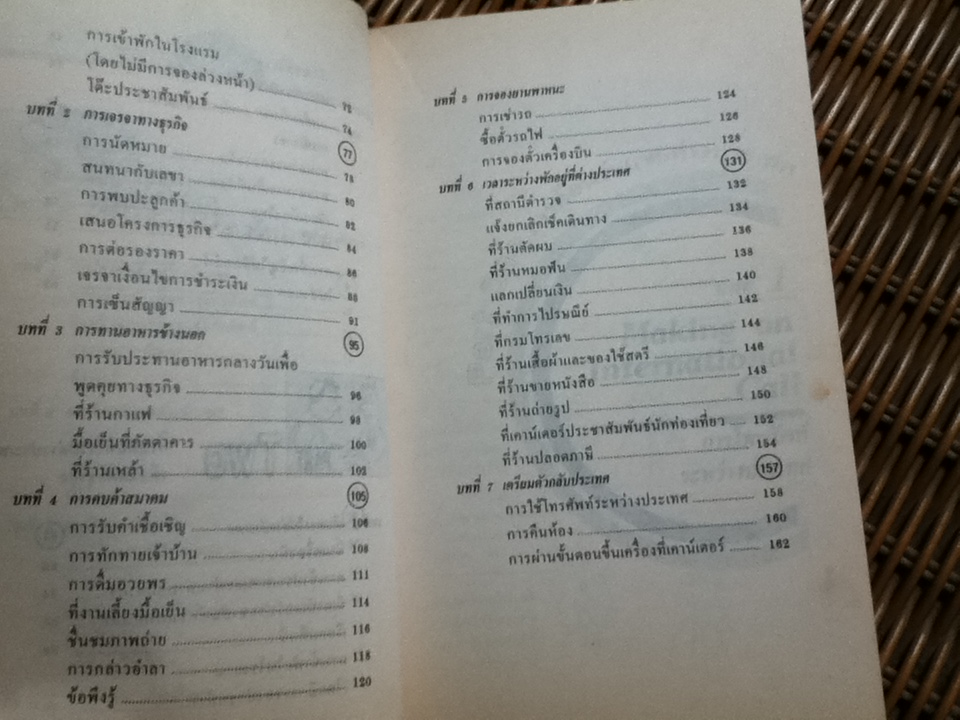 การเข้าพักในโรงแรม
(โดยไม่มีการจองล่วงหน้า) 72
โต๊ะประชาสัมพันธ์ 74
บทที่ 2 การเจรจาทางธุรกิจ 77
การนัดหมาย 78
สนทนากับเลขา 80
การพบปะลูกค้า 82
เสนอโครงการธุรกิจ 84
การต่อรองราคา 86
เจรจาเงื่อนไขการชำระเงิน 88
การเซ็นสัญญา 91
บทที่ 3 การทานอาหารข้างนอก 95
การรับประทานอาหารกลางวันเพื่อ
พูดคุยทางธุรกิจ 96
ที่ร้านกาแฟ 98
มื้อเย็นที่ภัตตาคาร 100
ที่ร้านเหล้า 102
บทที่ 4 การคบค้าสมาคม 105
การรับคำเชื้อเชิญ 106
การทักทายเจ้าบ้าน 108
การดื่มอวยพร 111
ที่งานเลี้ยงมื้อเย็น 114
ชื่นชมภาพถ่าย 116
การกล่าวอำลา 118
ข้อพึงรู้ 120
บทที่ 5 การจองยานพาหนะ
การเช่ารถ 124
ซื้อตั๋วรถไฟ 126
การจองตั๋วเครื่องบิน 128
บทที่ 6 เวลาระหว่างพักอยู่ที่ต่างประเทศ 131
ที่สถานีตำรวจ 132
แจ้งยกเลิกเช็คเดินทาง 134
ที่ร้านตัดผม 136
ที่ร้านหมอฟัน 138
แลกเปลี่ยนเงิน 140
ที่ทำการไปรษณีย์ 142
ที่กรมโทรเลข 144
ที่ร้านเสื้อผ้าและของใช้สตรี 146
ที่ร้านขายหนังสือ 148
ที่ร้านถ่ายรูป 150
ที่เคาน์เตอร์ประชาสัมพันธ์นักท่องเที่ยว 152
ที่ร้านปลอดภาษี 154
บทที่ 7 เตรียมตัวกลับประเทศ 157
การใช้โทรศัพท์ระหว่างประเทศ 158
การคืนห้อง 160
การผ่านขั้นตอนขึ้นเครื่องที่เคาน์เตอร์ 162